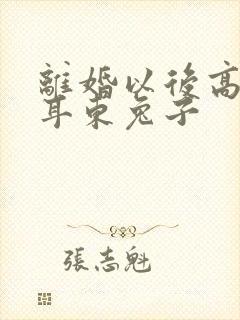 離婚以後高
耳東兔子
張志魁